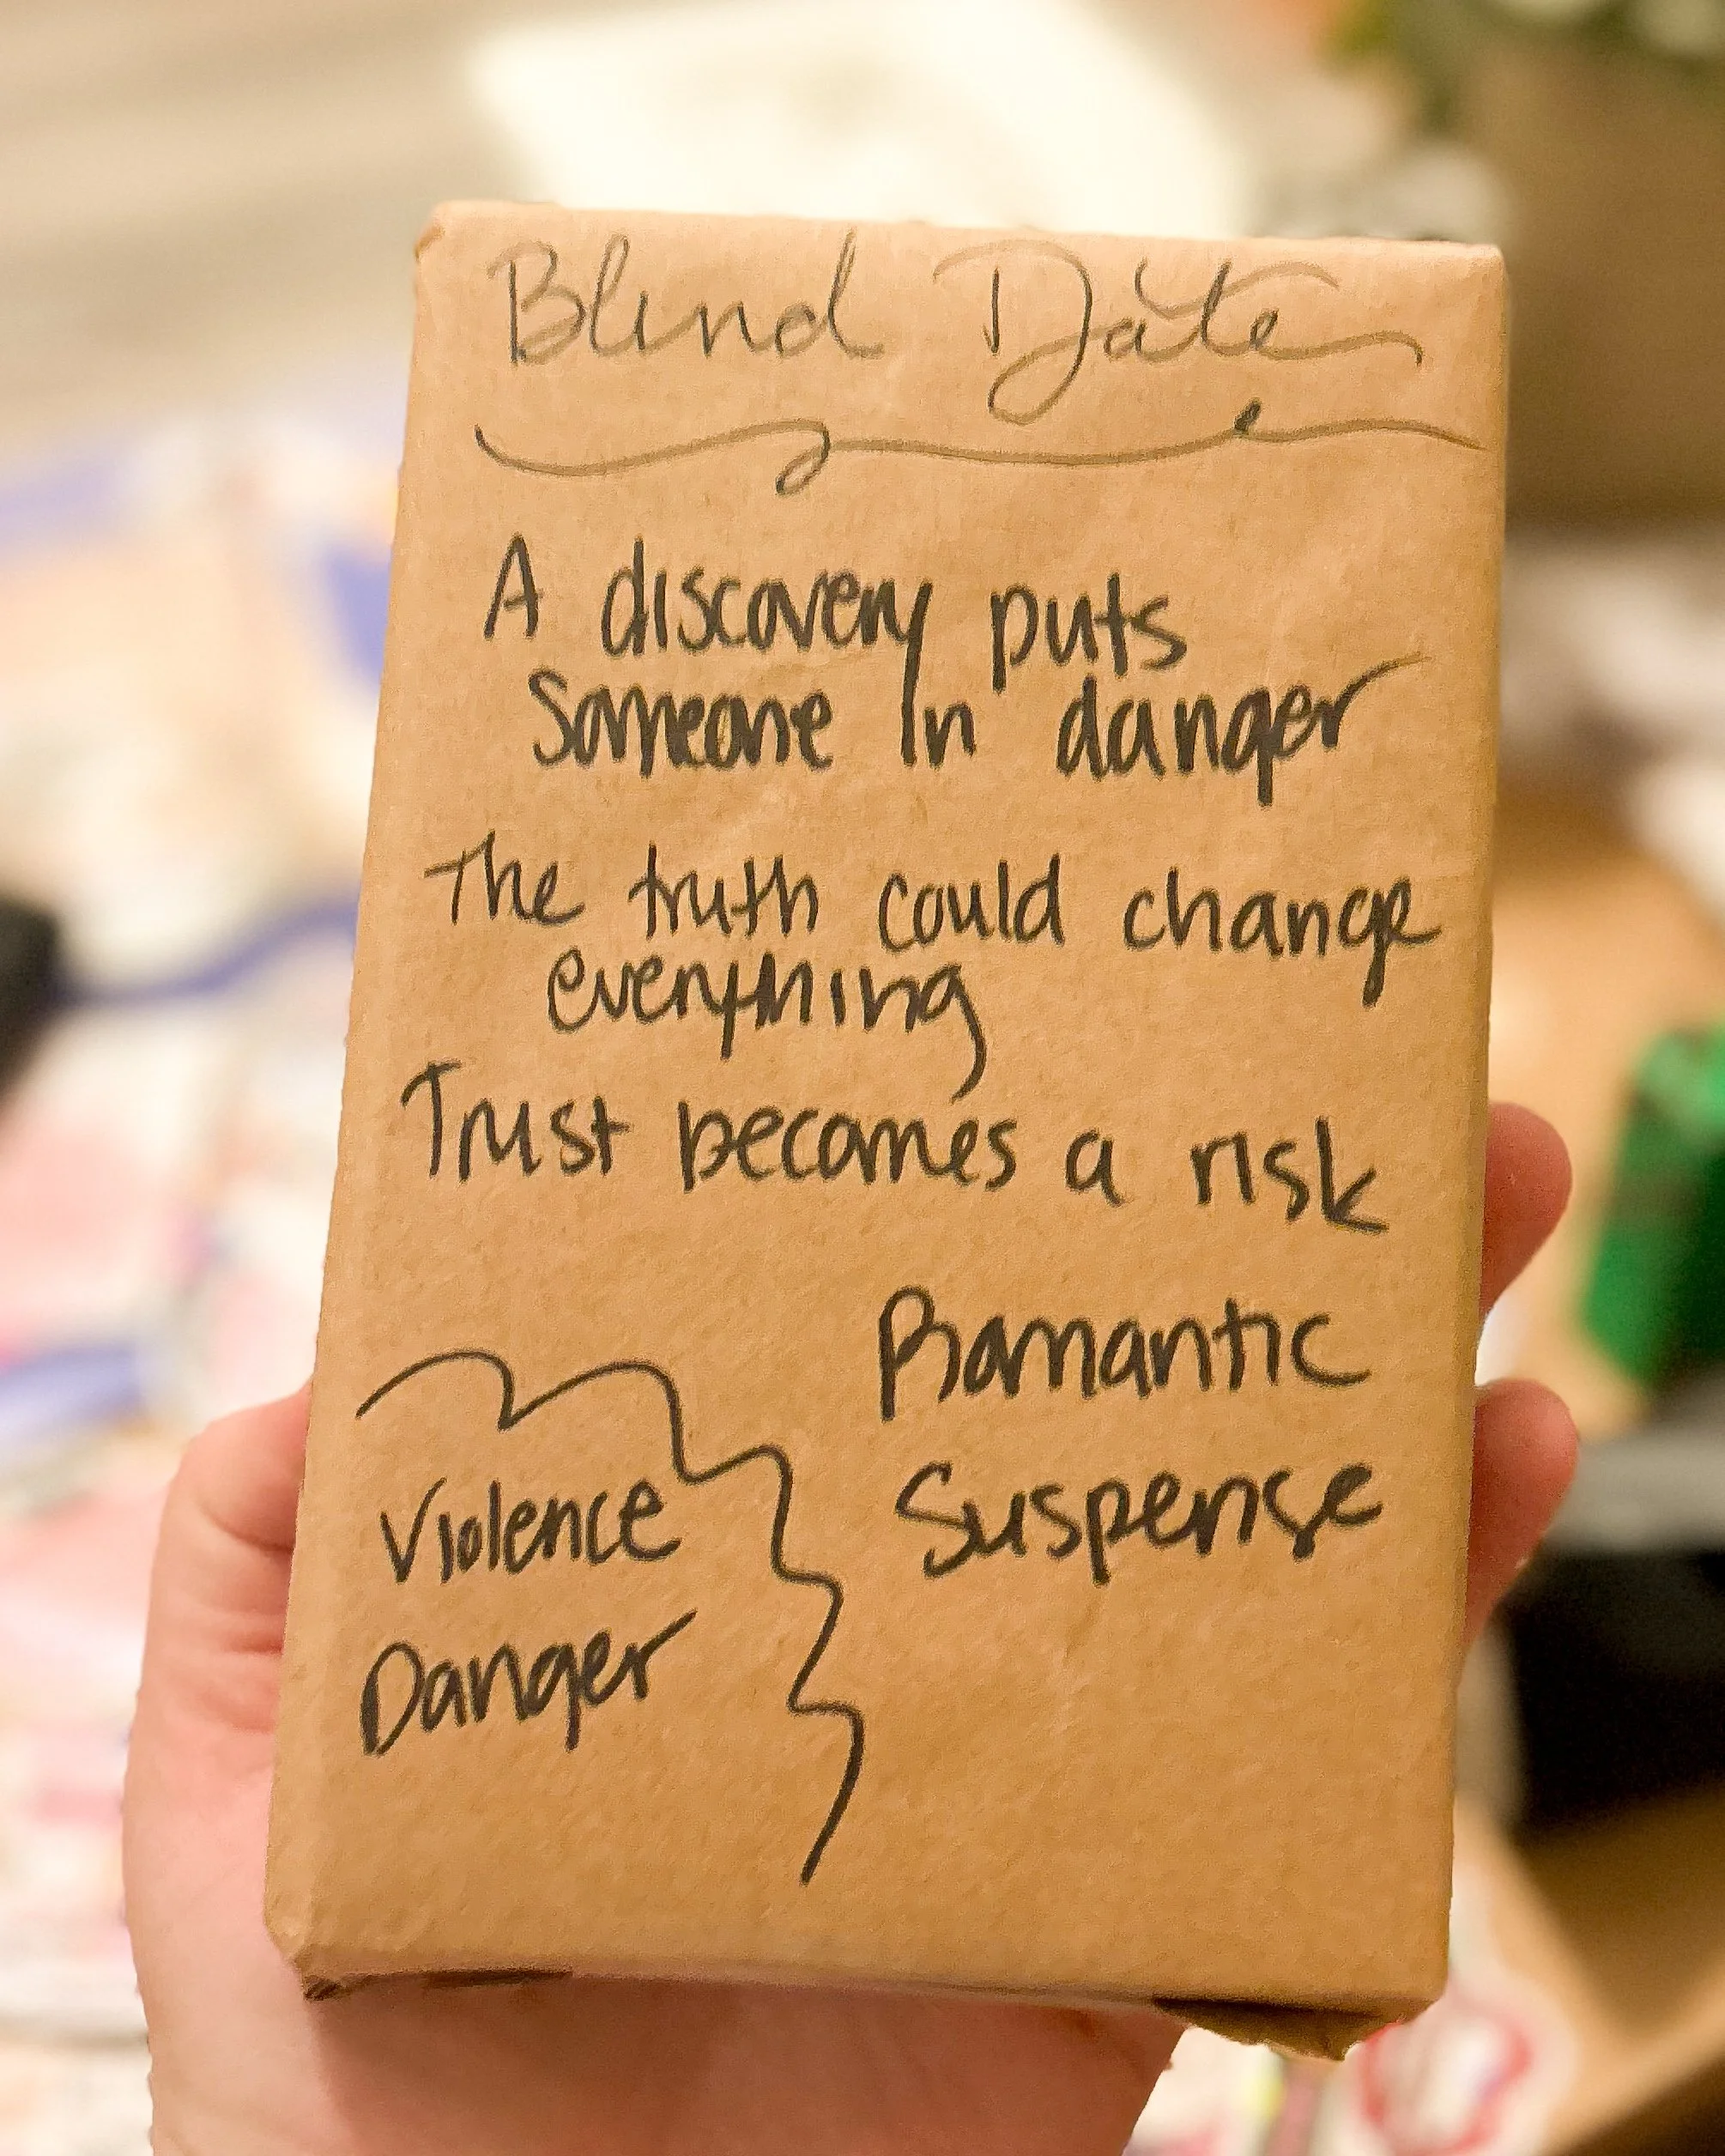 Blind Date
A discovery puts
someone in danger
The truth could change
everything
Trust becomes a risk
Romantic
Suspense
Violence
Danger